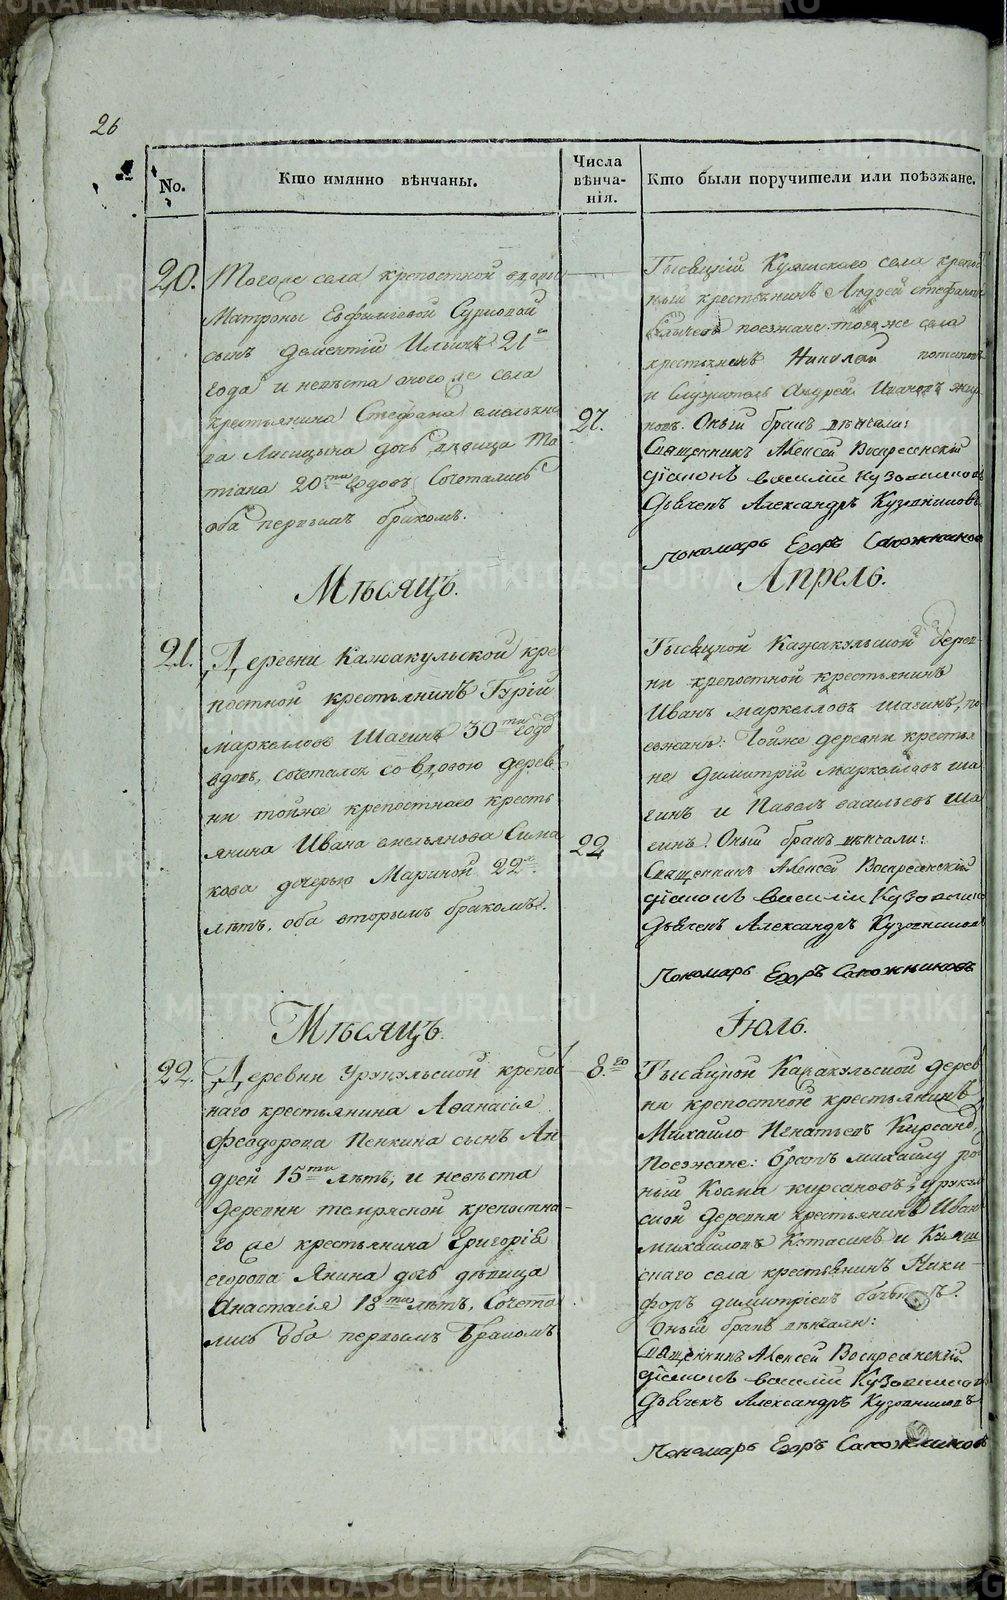 26
No.
Кто имянно вѣнчаны.
Числа
вѣнча-
нія.
Кто были поручители или поѣзжане.
20.
Тогоже села крепостной вдовы
Матроны Евфимѣевой Сурновой
сынъ Дементій Ильинъ 21го
года и невѣста оного же села
крестьянина Стефана Емельяно
ва Лисицына дочь дѣвица Та
тіана 20ти годовъ Сочетались
оба первымъ бракомъ.
27.
села крепос
ный крестьянинъ Андрей Стефанов
поезжане: того же села
крестьянинъ Николай
и служитель Андрей Ивановъ
новъ. Оный бракъ вѣнчали:
Священникъ Алексей Воскресенскій
діаконъ Василій Кузовников
Дьячекъ Александръ Кузовниковъ
Пономарь Егоръ Сапожников
Мѣсяцъ.
Апрель.
21.
Деревни Кажакульской кре
постной крестьянинъ Гурій
Маркелловъ Шагинъ 30ти годо
вдовъ, сочетался со вдовою дерев
ни тойже крепостнаго кресть
янина Ивана Емельянова Сима
кова дочерью Мариной 22хъ
лѣтъ, оба вторымъ бракомъ.
22
Кажакульской дерев
ни крепостной крестьянинъ
Иванъ Маркелловъ Шагинъ, по
езжане: Тойже деревни крестья
не Димитрій Маркелловъ Ша
гинъ и Павелъ Васильевъ Ша
гинъ. Оный бракъ вѣнчали:
Священникъ Алексей Воскресенскій
діаконъ Василій Кузовнико
Дьячекъ Александръ Кузовников
Пономарь Егоръ Сапожниковъ
Мѣсяцъ.
Іюль.
22.
Деревни Урукульской крепос
наго крестьянина Аѳанасія
Феодорова Пенкина сынъ Ан
дрей 15ти лѣтъ, и невѣста
деревни темрясной крепостна-
го же крестьянина Григорія
Егорова Янина дочь дѣвица
Анастасія 18ти лѣтъ, Сочета
лись оба первымъ бракомъ
8.го
Каракульской дерев
ни крепостной крестьянинъ
Михайло Игнатьевъ Кирсано
Поезжане: братъ михайлу ро
ный Косма Кирсановъ, уруку
ской деревни крестьянинъ Иван
Михайловъ Котасинъ и
скаго села крестьянинъ Ники-
форъ Димитріевъ
Оный бракъ вѣнчали:
Священникъ Алексей Воскресенскій
діаконъ Василій Кузовников
Дьячекъ Александръ Кузовниковъ
Пономарь Егоръ Сапожников
METRIKI.GASO-URAL.RU